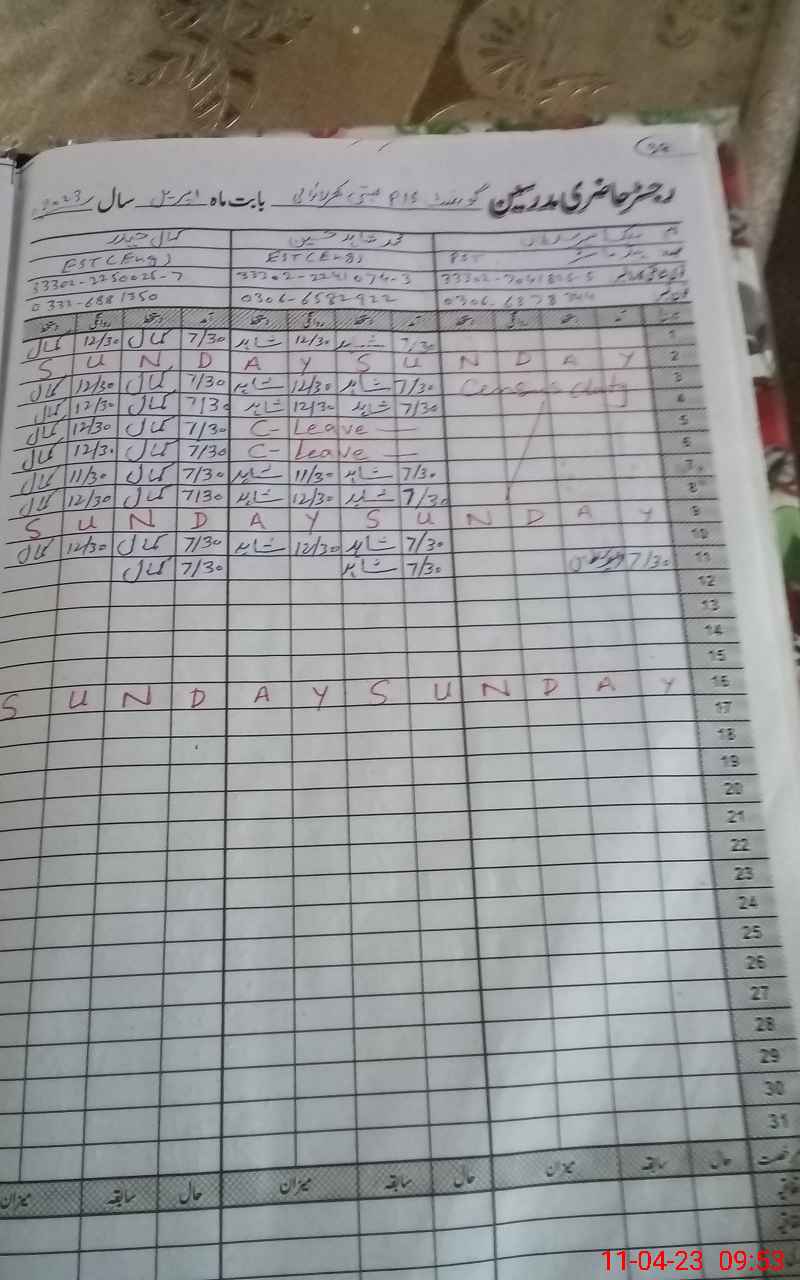 رجسٹر حاضری مدرسین گورنمنٹ P/S بابت ماہ اپریل سال 2023
محمد شاہد حسین کمال حیدر
PST EST(Eng) EST(Eng)
33302-2241074-3 33302-2250026-7
0306-6582922 0333-6881350
1 7/30 شاہد 12/30 شاہد 7/30 کمال 12/30 کمال
2 S U N D A Y S U N D A Y
3 Census duty 7/30 شاہد 12/30 شاہد 7/30 کمال 12/30 کمال
4 7/30 شاہد 12/30 شاہد 7/30 کمال 12/30 کمال
5 C- Leave — 7/30 کمال 12/30 کمال
6 C- Leave — 7/30 کمال 12/30 کمال
7 7/30 شاہد 11/30 شاہد 7/30 کمال 11/30 کمال
8 7/30 شاہد 12/30 شاہد 7/30 کمال 12/30 کمال
9 S U N D A Y S U N D A Y
10 7/30 شاہد 12/30 شاہد 7/30 کمال 12/30 کمال
11 7/30 7/30 شاہد 7/30 کمال
12
13
14
15
16 S U N D A Y S U N D A Y
17
18
19
20
21
22
23
24
25
26
27
28
29
30
31
رخصت حال سابقہ میزان حال سابقہ میزان حال سابقہ میزان
11-04-23 09:53